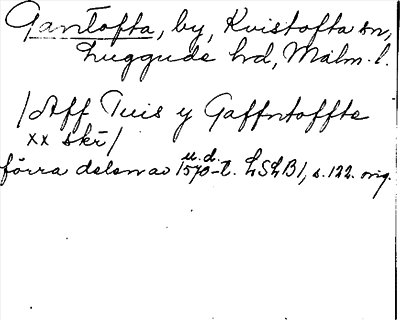 Gantofta, by, Kvistofta sn,
Luggude hd, Malm. l.
/Aff Tuis y Gaffntoffte
xx skr/
u.d.
förra delen av 1570-t. LSLB1, s. 122. orig.